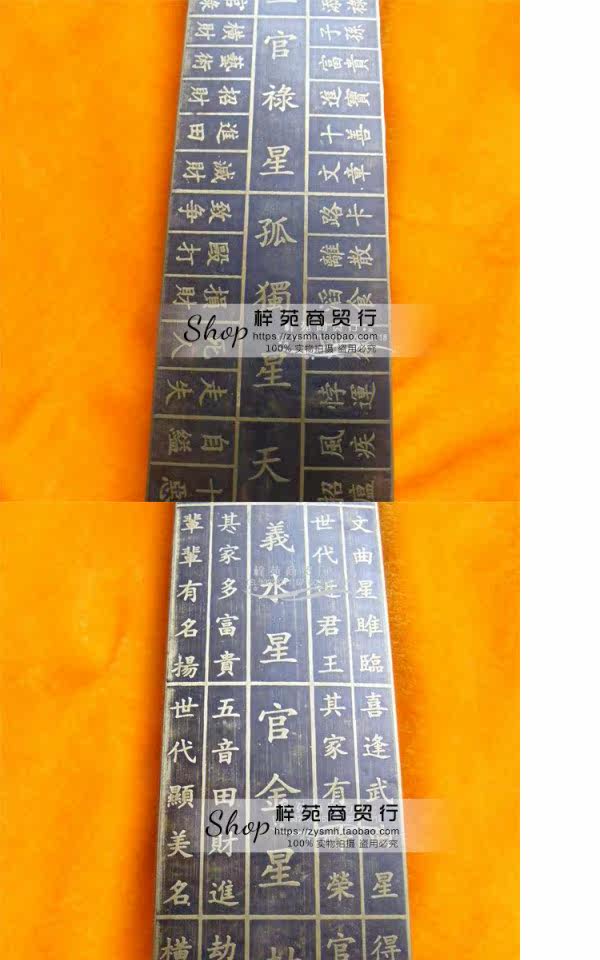 官祿
橫財
藝術
招財
進田
減財
致爭
毆打
橫財
走失
自縊
十惡
官祿星孤獨星天
子孫
富貴
進寶
十善
文章
路卡
離散
悖運
風疾
招瘟
Shop 梓苑商贸行
https://zysmh.taobao.com
100% 实物拍摄 盗用必究
文曲星睢臨
喜逢武
星
得
世代
君王
其家有
榮
官
義水星官金星
其家多富貴
五音田財進
劫
輩輩有名揚
世代顯美名
橫
Shop 梓苑商贸行
https://zysmh.taobao.com
100% 实物拍摄 盗用必究